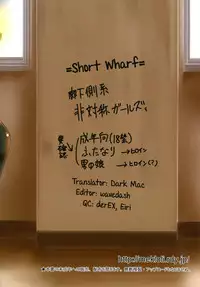 =Short Wharf=
廊下側系
非対称ガールズ。
要確認
成年向(18禁)
ふたなり →ヒロイン
男の娘 →ヒロイン(?)
Translator: Dark Mac
Editor: wavedash
QC: derEX, Eiri